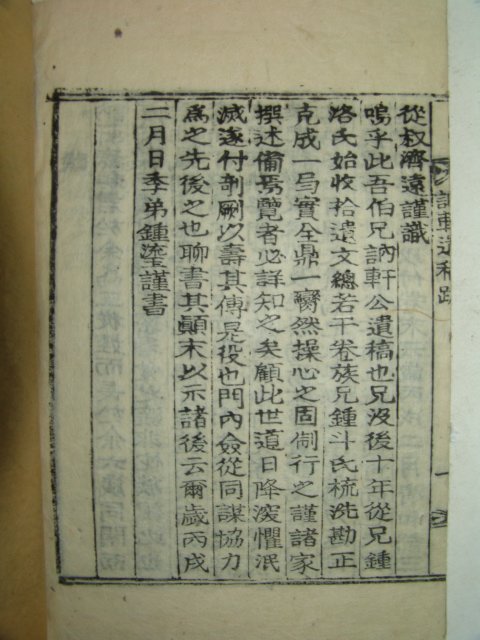 訥軒遺稿跋
從叔濟遠謹識
嗚乎此吾伯兄訥軒公遺稿也兄沒後十年從兄鍾
洛氏始收拾遺文總若干卷族兄鍾斗氏梳洗勘正
克成一局實全鼎一臠然操心之固制行之謹諸家
撰述備焉覽者必詳知之矣顧此世道日降深懼泯
滅遂付剞劂以壽其傳是役也門內僉從同謀協力
爲之先後之也聊書其顚末以示諸後云爾歲丙戌
二月日季弟鍾瀅謹書